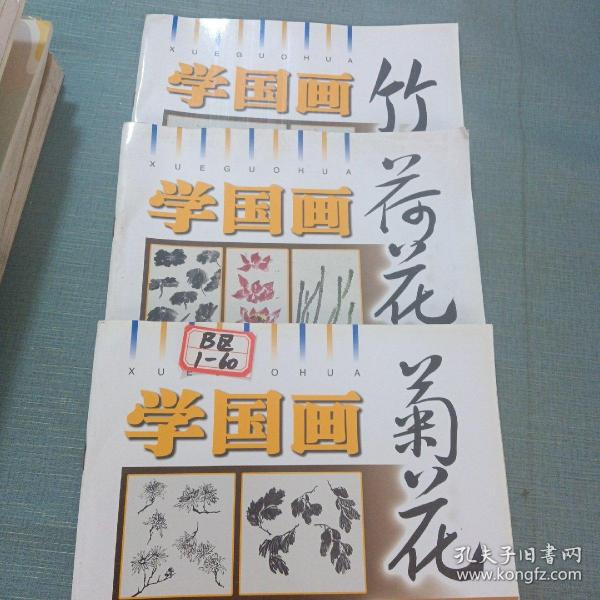 XUEGUOHUA
学国画
竹
XUEGUOHUA
学国画
荷花
B区
1-60
XUE OHUA
学国画
菊花
孔夫子旧书网
www.kongfz.com